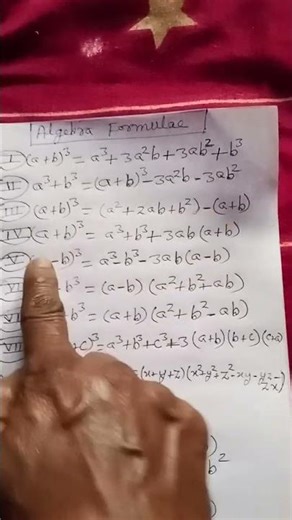 Algebra Formulae
I (a+b)³ = a³+3a²b+3ab²+b³
II a³+b³ = (a+b)³-3a²b-3ab²
III (a+b)³ = (a²+2ab+b²)-(a+b)
IV (a+b)³ = a³+b³+3ab(a+b)
V -b)³ = a³-b³-3ab(a-b)
b³ = (a-b)(a²+b²+ab)
b³ = (a+b)(a²+b²-ab)
+c)³ = a³+b³+c³+3(a+b)(b+c)(c+a)
=(x+y+z)(x³+y²+z²-xy-yz-zx)
b²